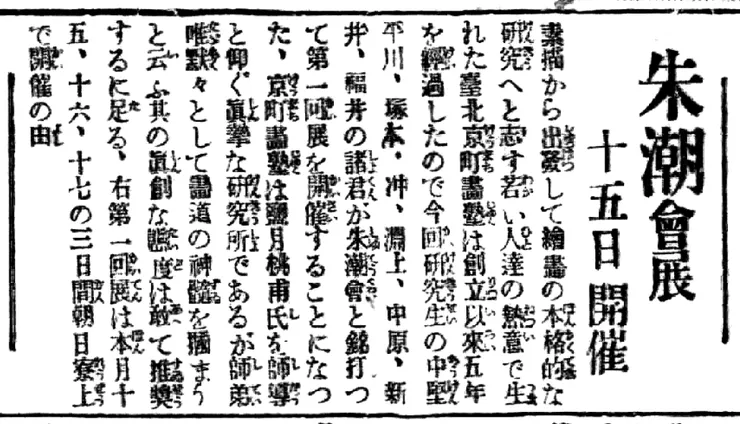 朱潮會展
十五日開催
素描から出發して繪畫の本格的な
研究へと志す若い人達の熱意で生
れた臺北京町畵塾は創立以來五年
を經過したので今回研究生の中堅
平川、塚本、冲、淵上、中原、新
井、福井の諸君が朱潮會と銘打つ
て第一回展を開催することになつ
た、京町畵塾は鹽月桃甫氏を師導
と仰ぐ眞摯な研究所であるが師弟
唯默々として畵道の神髓を摑まう
と云ふ其の眞創な態度は敢て推奬
するに足る、右第一回展は本月十
五、十六、十七の三日間朝日寮上
で開催の由